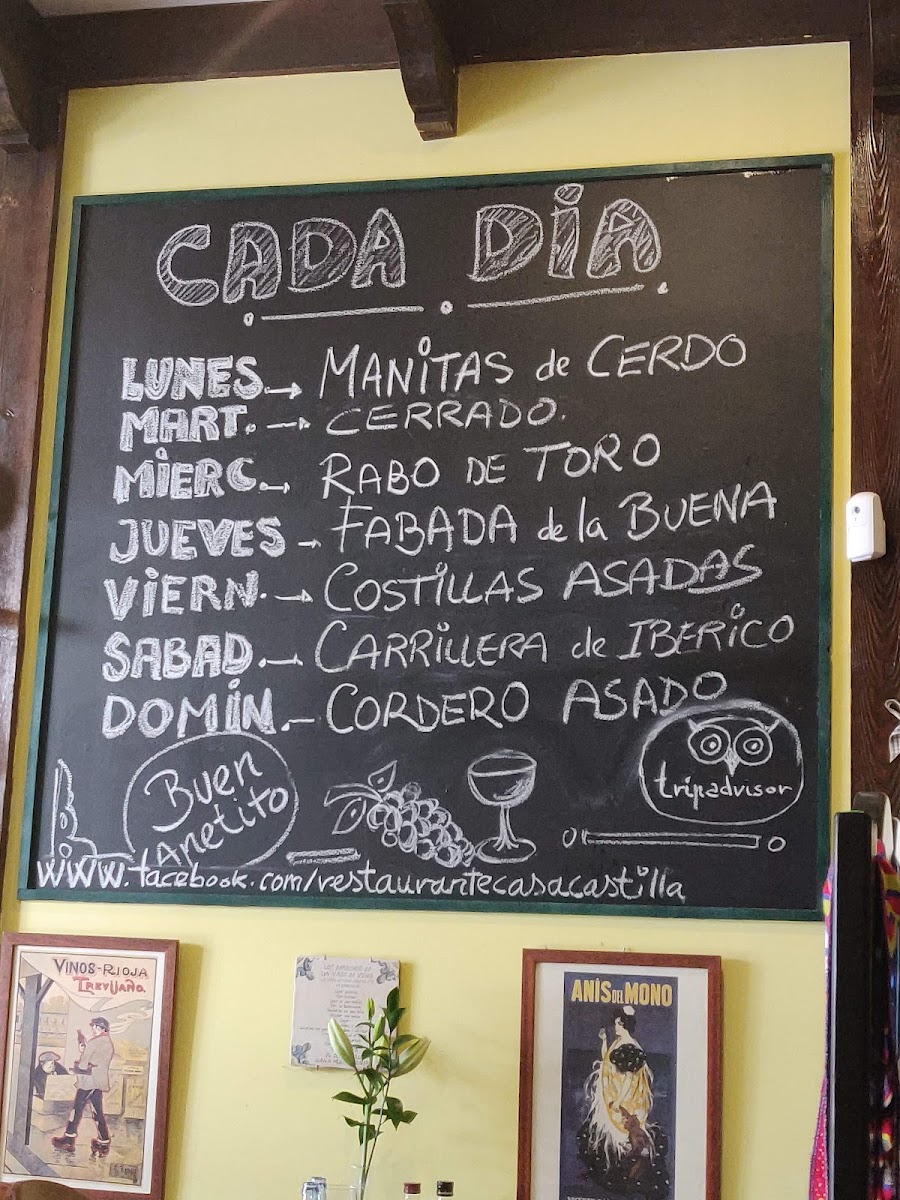 CADA DiA
LUNES.→ MANiTAS de CERDO
MART.→ CERRADO.
MiERC.→ RABO DE TORO
JUEVES→ FABADA de la BUENA
ViERN.→ COSTiLLAS ASADAS
SABAD.→ CARRiLLERA de IBERiCO
DOMiN.– CORDERO ASADO
Buen
Apetito
tripadvisor
www.facebook.com/restaurantecasacastilla
VINOS-RIOJA
TREVIJANO.
ANÍS DEL MONO